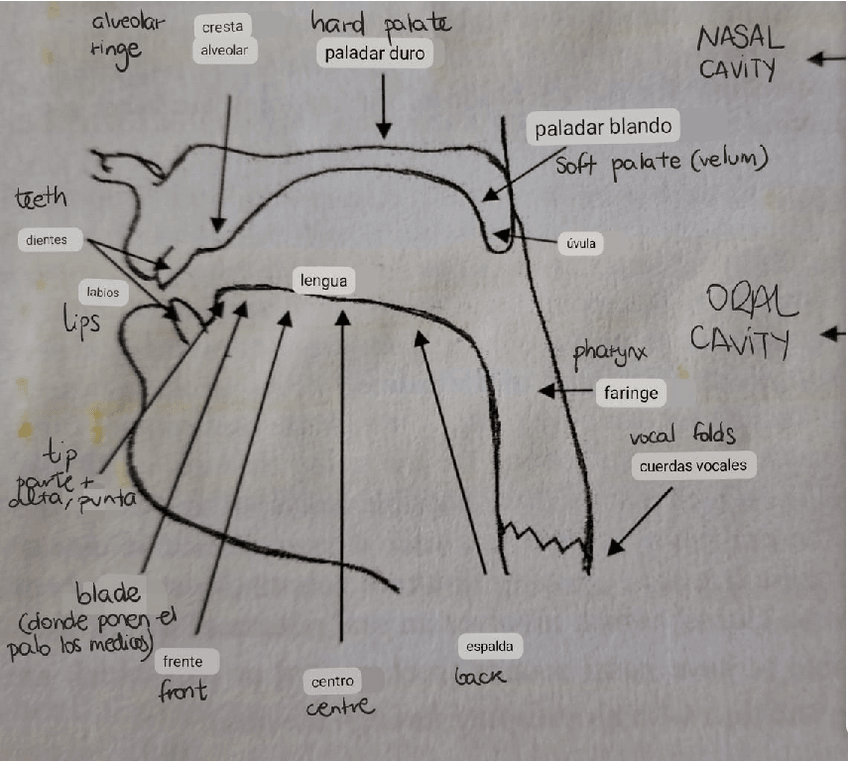 alveolar
ringe
cresta
alveolar
hard palate
paladar duro
NASAL
CAVITY
paladar blando
Soft palate (velum)
teeth
dientes
úvula
labios
lips
lengua
ORAL
CAVITY
pharynx
faringe
vocal folds
cuerdas vocales
tip
parte +
alta, punta
blade
(donde ponen el
palo los medicos)
frente
front
centro
centre
espalda
back